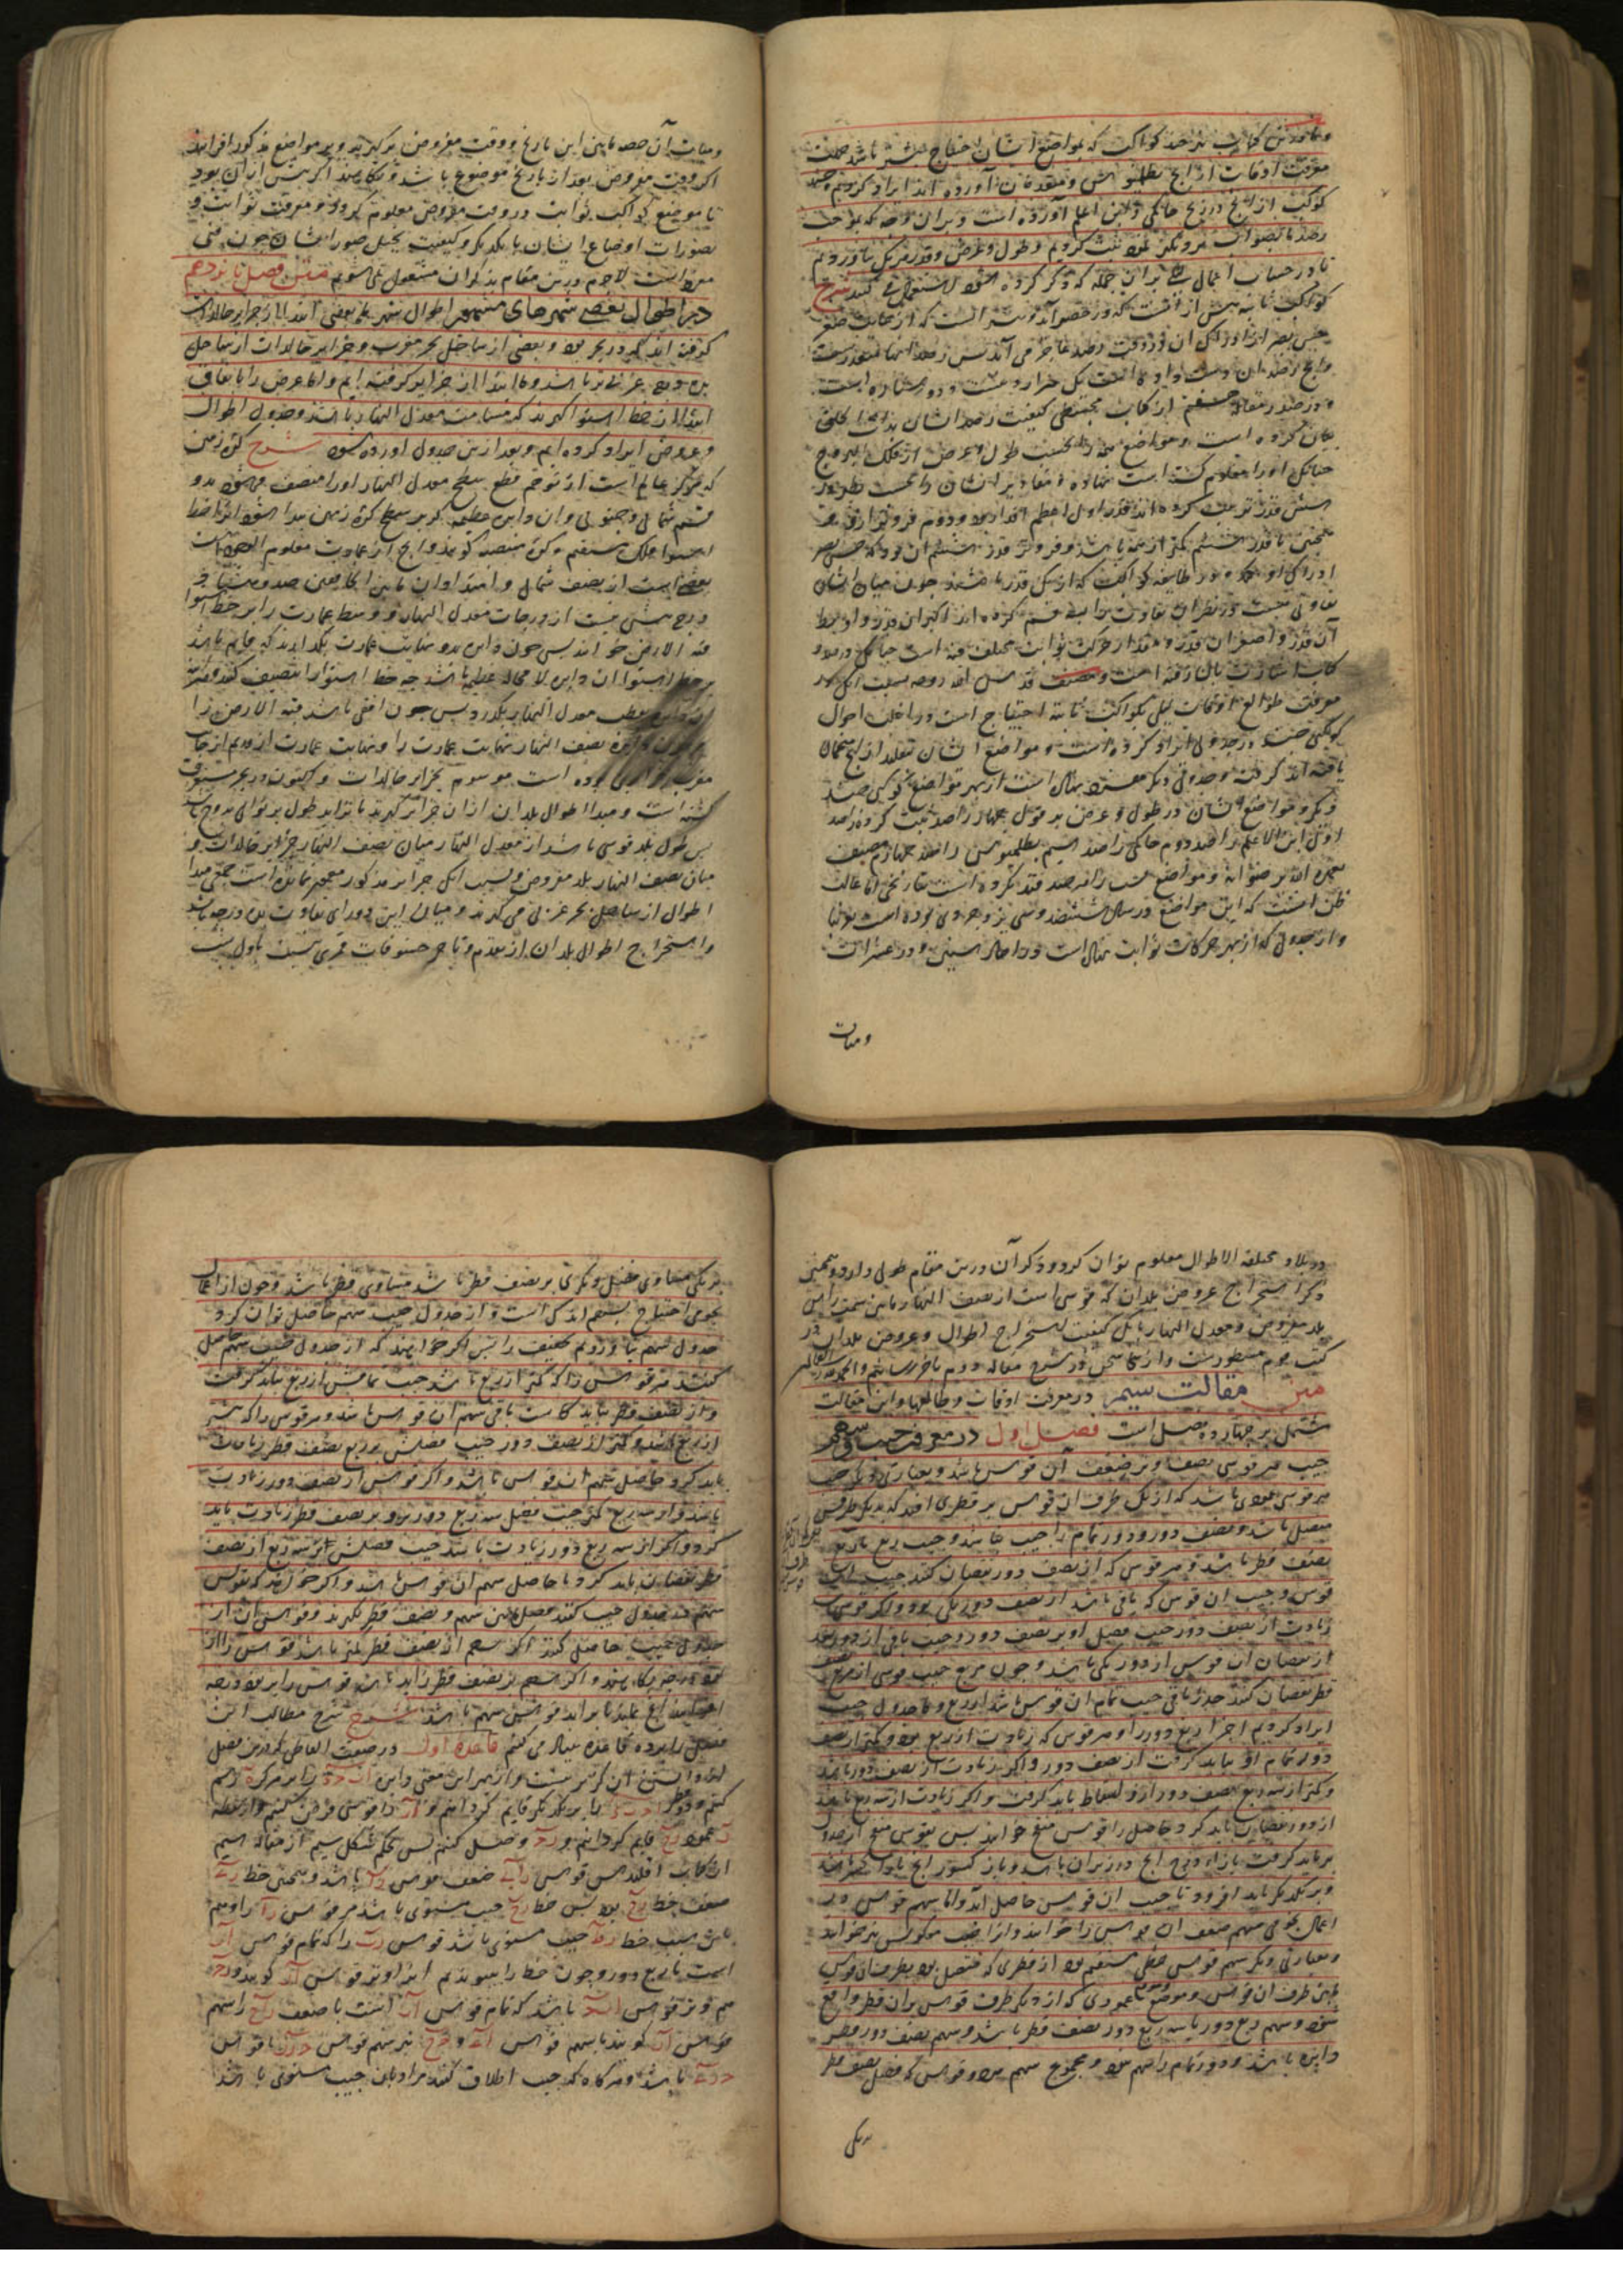 و ما درین کتاب چند کواکب که بمواضع ایشان احتیاج بیشتر باشد جهت
معرفت اوقات از زیج بطلیوس و متقدمان آورده اند ایراد کردیم و چند
کوکب از زیج حاکمی و ابن اعلم آورده است و بران وجه که بموجب
رصد ما بصواب نزدیکتر بود ثبت کردیم و طول و عرض و قدر هر یک بیاوردیم
تا در حساب اعمال بران جمله که ذکر کرده شود استعمال کنند شرح
کواکب ثابته بیش از انست که در حصر آید و سر انست که از غایت صغر
حس بصر از ادراک آن در وقت رصد عاجز می آید پس رصد آنها متعذرست
وانچ ارصد آن دست داده است یک هزار و بیست و دو ستاره است
و در صدر مقاله هشتم از کتاب مجسطی کیفیت رصد ایشان
بیان کرده است و مواضع همه را بحسب طول و عرض از فلک البروج
چنانک او را معلوم گشت است نهاده و مقادیر ایشان را بحسب نظر در
شش قدر ترتیب کرده اند قدر اول اعظم اقدار بود و دوم فروتر ازو و
همچنین تا قدر ششم کمتر از همه باشد و فروتر قدر ششم آن بود که حس بصر
ادراک او نکند و هر طایفه کواکب که از یک قدر باشند چون میان ایشان
تفاوتی هست در نظر آن تفاوت را بسه قسم کرده اند اکبر آن قدر و اوسط
آن قدر و اصغر آن قدر و مقدار حرکت ثوابت مختلف فیه است چنانک در صدر
کتاب اشارت بآن رفته است و مصنف قدس الله روحه بسبب آنک در
معرفت طوالع اوقات لیلی بکواکب ثابته احتیاج است در اغلب احوال
کوکبی چند در جدولی ایراد کرده است و مواضع ایشان بتقلید از زیج
یافته اند گرفته و جدولی دیگر نهاده است از بهر مواضع کوکبی چند
دیگر و مواضع ایشان در طول و عرض بر قول چهار راصد ثبت کرده راصد
اول ابن الاعلم راصد دوم حاکمی راصد سیم بطلمیوس راصد چهارم مصنف
و مواضع را برصد مقید نکرده است بتاریخی اما غالب
ظن آنست که این مواضع در سال ششصد و سی یزدجردی بوده است
و از جدولی که از بهر حرکات ثوابت نهاده است در احاد سنین و در عشرات
ومیات
ومیات آن حصه مابین این تاریخ و وقت مفروض برگیرند و بر مواضع مذکور افزایند
اگر وقت مفروض بعد از تاریخ موضوع باشد و بکاهند اگر پیش از ان بود
تا موضع کواکب ثوابت در وقت مفروض معلوم گردد و معرفت ثوابت و
تصورات اوضاع ایشان با یکدیگر و کیفیت تخیل صور ایشان چون فنی
مفرد است لاجرم درین مقام بذکر آن مشغول نمی شویم متن فصل پانزدهم
در اطوال بعضی شهرهای مشهور اطوال شهرها بعضی ابتدا از جزایر خالدات
گرفته اند که در بحر بوده و بعضی از ساحل بحر مغرب و جزایر خالدات از ساحل
بده درجه غربی تر باشد و ما ابتدا از جزایر گرفته ایم و اما عرض را باتفاق
ابتدا از خط استوا گیرند که مسامت معدل النهار باشد و جدول اطوال
و عروض ایراد کرده ایم و بعد ازین جدول آورده شود شرح کره زمین
که مرکز عالم است از توهم قطع سطح معدل النهار او را منصف می شود بدو
قسم شمالی و جنوبی و آن دایره عظیمه که بر سطح کره زمین پیدا شود آنرا خط
استوا و فلک مستقیم و کره منتصبه گویند وانچ از عمارت معلوم است
بعضی است از نصف شمالی و ابتدا و آن مابین آنجا یعنی صد و هشتاد
درج بیش نیست از درجات معدل النهار و وسط عمارت را بر خط استوا
قبه الارض خوانند پس چون دایره بدو نهایت عمارت بگذرانند که قایم باشد
بر خط استوا آن دایره لا محاله عظیمه باشد چه خط استوا را تنصیف کند
قطب معدل النهار بگذرد پس چون افقی باشد قبه الارض را
دایره نصف النهار نهایت عمارت را و نهایت عمارت از قدیم از جانب
مغرب جزایری بوده است موسوم بجزایر خالدات و اکنون در بحر مستغرق
گشته است و مبدا اطوال بلدان از آن جزایر گیرند تا تزاید طول بر توالی بروج باشد
پس طول بلد قوسی باشد از معدل النهار میان نصف النهار جزایر خالدات و
میان نصف النهار بلد مفروض و بسبب آنک جزایر مذکور معمور نمانده است جمعی مبدا
اطوال از ساحل بحر غربی می گیرند و میان این دو رای تفاوت ده درجه باشد
و استخراج اطوال بلدان از تقدم و تاخر خسوفات قمری نسبت باول شب
در بلاد مختلفه الاطوال معلوم توان کرد و ذکر آن درین مقام طولی دارد و همچنین
ذکر استخراج عروض بلدان که قوسی است از نصف النهار مابین سمت راس
بلد مفروض و معدل النهار بل کیفیت استخراج اطوال و عروض بلدان در
کتب قوم مسطورست و از اینجا سخن در شرح مقاله دوم بآخر رسانیدیم و الحمد لله رب العالمین
متن مقالت سیم در معرفت اوقات و طالعها و این مقالت
مشتمل بر چهارده فصل است فصل اول در معرفت جیب و سهم
جیب هر قوسی نصف وتر ضعف آن قوس باشد و بعبارتی دیگر جیب
هر قوسی عمودی باشد که از یک طرف آن قوس بر قطری افتد که بدیگر طرفش
متصل باشد و نصف دور و دور تمام را جیب نباشد و جیب ربع
نصف قطر باشد و هر قوس که از نصف دور نقصان کنند جیب آن
قوس و جیب آن قوس که باقی باشد از نصف دور یکی بود و اگر قوس
زیادت از نصف دور جیب فضل او بر نصف دور و جیب باقی از دور بعد
از نقصان آن قوس از دور یکی باشد و چون مربع جیب قوسی از مربع نصف
قطر نقصان کنند جذر باقی جیب تمام آن قوس باشد از ربع و ما جدول جیب
ایراد کردیم اجزاء ربع دور را و هر قوس که زیادت از ربع بود و کمتر از نصف
دور تمام او بباید گرفت از نصف دور و اگر زیادت از نصف دور باشد
و کمتر از سه ربع نصف دور ازو اسقاط باید کرد و اگر زیادت از سه ربع باشد
از دور نقصان باید کرد و حاصل را قوس منقح خوانند پس بقوس منقح از جدول
برباید گرفت بازاء درج انچ در زیر آن باشد و باز کسور انچ بازاء
و بر یکدیگر باید افزود تا جیب آن قوس حاصل آید و اما سهم قوس در
اعمال نجومی سهم ضعف آن قوس را خوانند و آنرا جیب معکوس نیز خوانند
و بعبارتی دیگر سهم قوس خطی مستقیم بود از قطری که متصل بود بطرف آن قوس
میان طرف آن قوس و موضع عمودی که از دیگر طرف قوس بران قطر واقع
شود و سهم ربع دور یا سه ربع دور نصف قطر باشد و سهم نصف دور قطر
دایره باشد و دور تمام را سهم نبود و مجموع سهم هر دو قوس که فضل نصف قطر
بریکی
بر یکی مساوی فضل دیگری بر نصف قطر باشد مساوی قطر باشد و چون در اعمال
نجومی احتیاج بسهم اندکی است و از جدول جیب سهم حاصل توان کرد
جدول سهم نیاوردیم تخفیف را پس اگر خواهند که از جدول جیب سهم حاصل
کنند هر قوس را که کمتر از ربع باشد جیب تمامش از ربع بباید گرفت
و از نصف قطر بباید کاست باقی سهم آن قوس باشد و هر قوس را که بیشتر
از ربع باشد و کمتر از نصف دور جیب فضلش بر ربع بر نصف قطر زیادت
باید کرد حاصل سهم آن قوس باشد و اگر قوس از نصف دور زیادت
باشد و از سه ربع کمتر جیب فضل سه ربع دور برو بر نصف قطر زیادت باید
کرد و اگر از سه ربع دور زیادت باشد جیب فضلش بر سه ربع از نصف
قطر نقصان باید کرد تا حاصل سهم آن قوس باشد و اگر خواهند که قوس
سهم از جدول جیب کنند فضل میان سهم و نصف قطر بگیرند و قوس آن از
جدول جیب حاصل کنند اگر سهم از نصف قطر کمتر باشد قوس را از
نود درجه بکاهند و اگر سهم بر نصف قطر زاید باشد قوس را بر نود درجه
افزایند تا قوس سهم باشد شرح شرح مطالب این
فصل را بر ده قاعده بنا می کنیم قاعده اول در صفت الفاظی که درین فصل
از دانستن آن گریز نیست و از بهر این معنی دایره اب ج د را بر مرکز ه رسم
کنیم و دو قطر را بر یکدیگر قایم گردانیم و ار را قوسی فرض کنیم و از نقطه
ر عمود رح قایم گردانیم و رج وصل کنیم پس بحکم شکل سیم از مقاله سیم
از کتاب اقلیدس قوس ضعف قوس را باشد و همچنین خط
ضعف خط رح بود پس خط رح جیب مستوی باشد مر قوس را و هم
باین سبب خط رط جیب مستوی باشد قوس رب را که تمام قوس ار
است تا ربع دور و چون خط ار را بپیوندیم آنرا وتر قوس ار گویند و رج
هم وتر قوس باشد که تمام قوس ار است تا نصف و اح را سهم
قوس ار گویند یا سهم قوس و ح ج نیز سهم قوس یا قوس
باشد و هر گاه که جیب اطلاق کنند مراد بآن جیب مستوی باشد